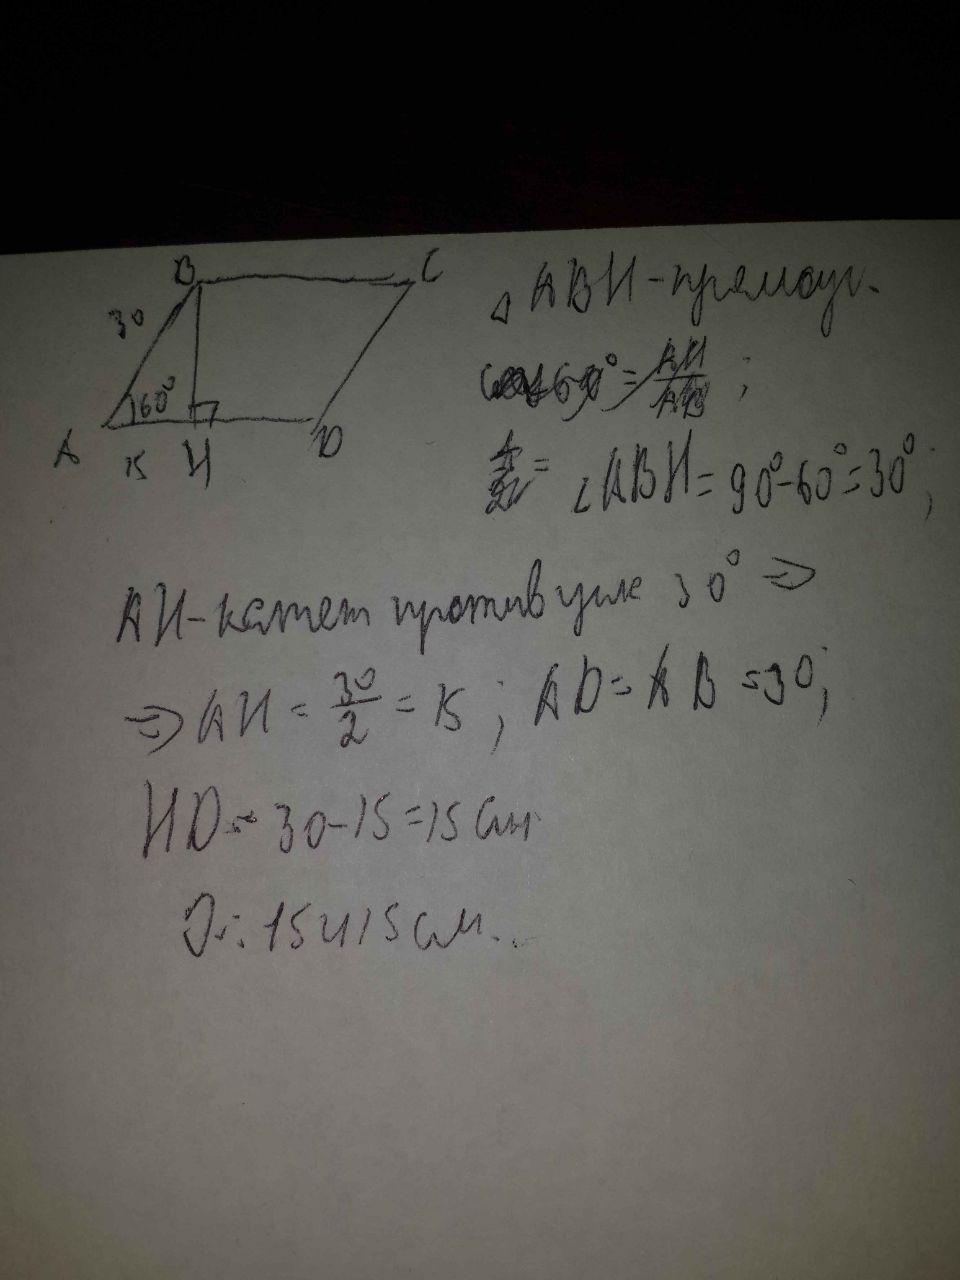 B C
30
60°
A 15 H D
△ ABH - прямоуг.
cos 60° = AH/AB ;
= ∠ABH = 90° - 60° = 30° ;
AH - катет против угла 30° ⇒
⇒ AH = 30/2 = 15 ; AD = AB = 30 ;
HD = 30 - 15 = 15 см
О.: 15 и 15 см.